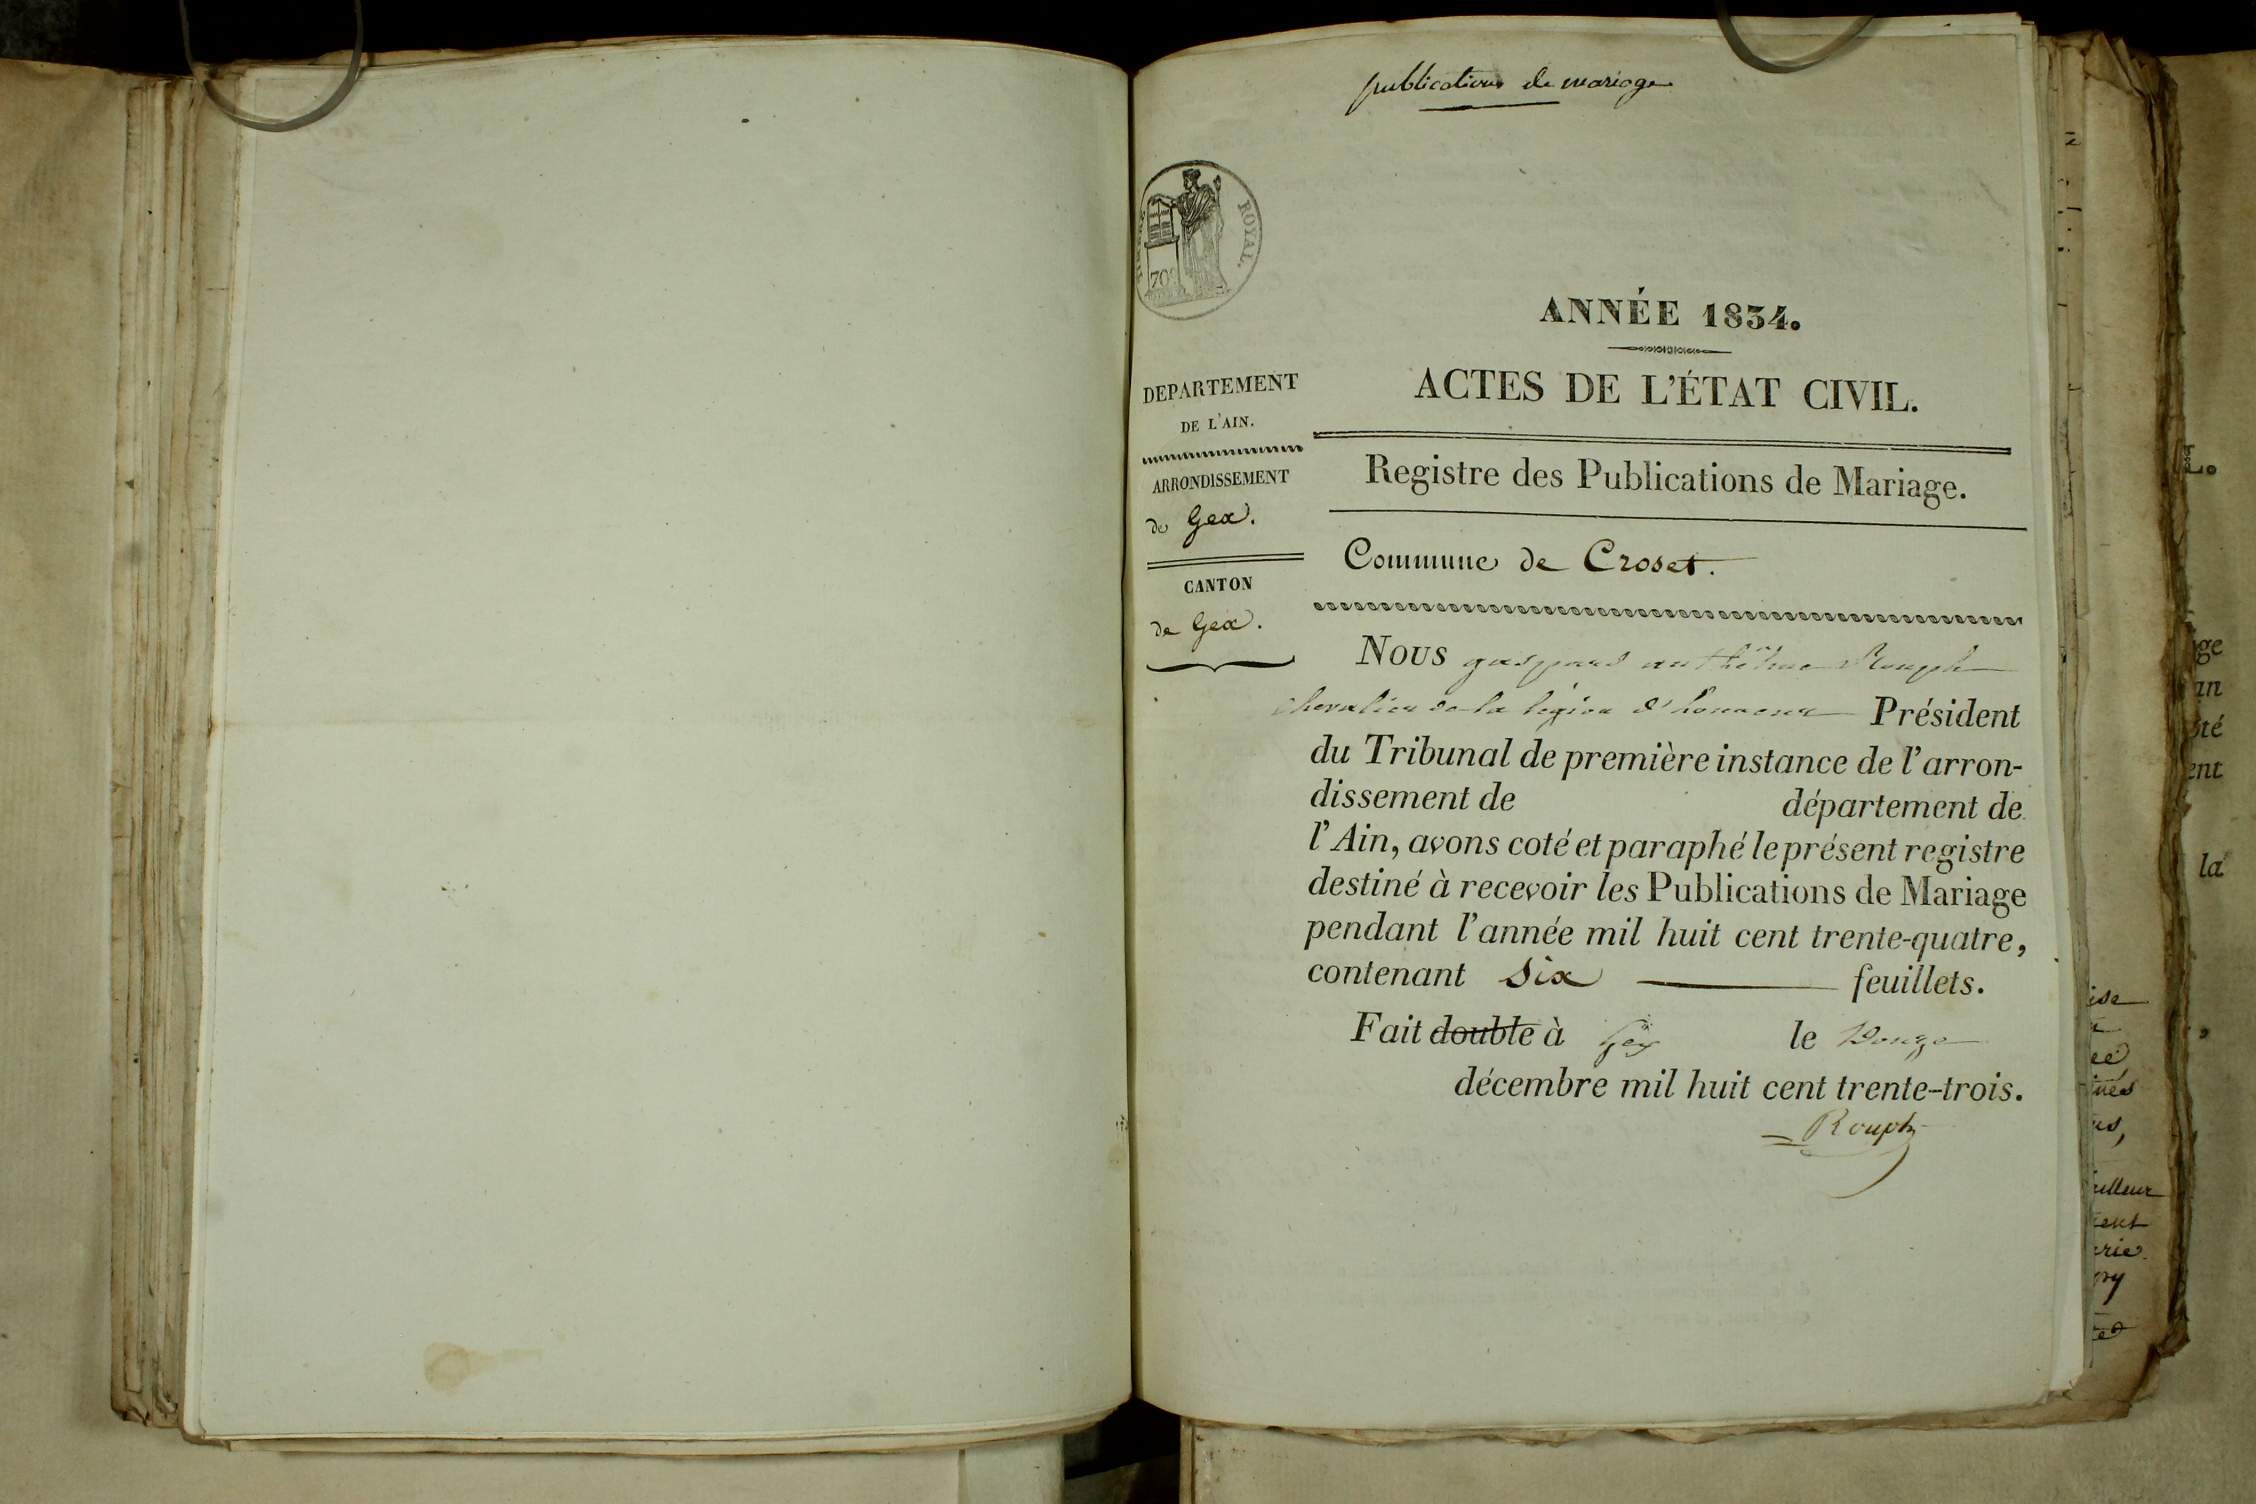 publications de mariage
TIMBRE ROYAL.
70
ANNÉE 1834.
ACTES DE L'ÉTAT CIVIL.
DEPARTEMENT
DE L'AIN.
ARRONDISSEMENT
de Gex.
CANTON
de Gex.
Registre des Publications de Mariage.
Commune de Croset.
Nous gaspard anthelme Rouph
chevalier de la légion d'honneur Président
du Tribunal de première instance de l'arron-
dissement de département de
l'Ain, avons coté et paraphé le présent registre
destiné à recevoir les Publications de Mariage
pendant l'année mil huit cent trente-quatre,
contenant six feuillets.
Fait double à Gex le Douze
décembre mil huit cent trente-trois.
Rouph